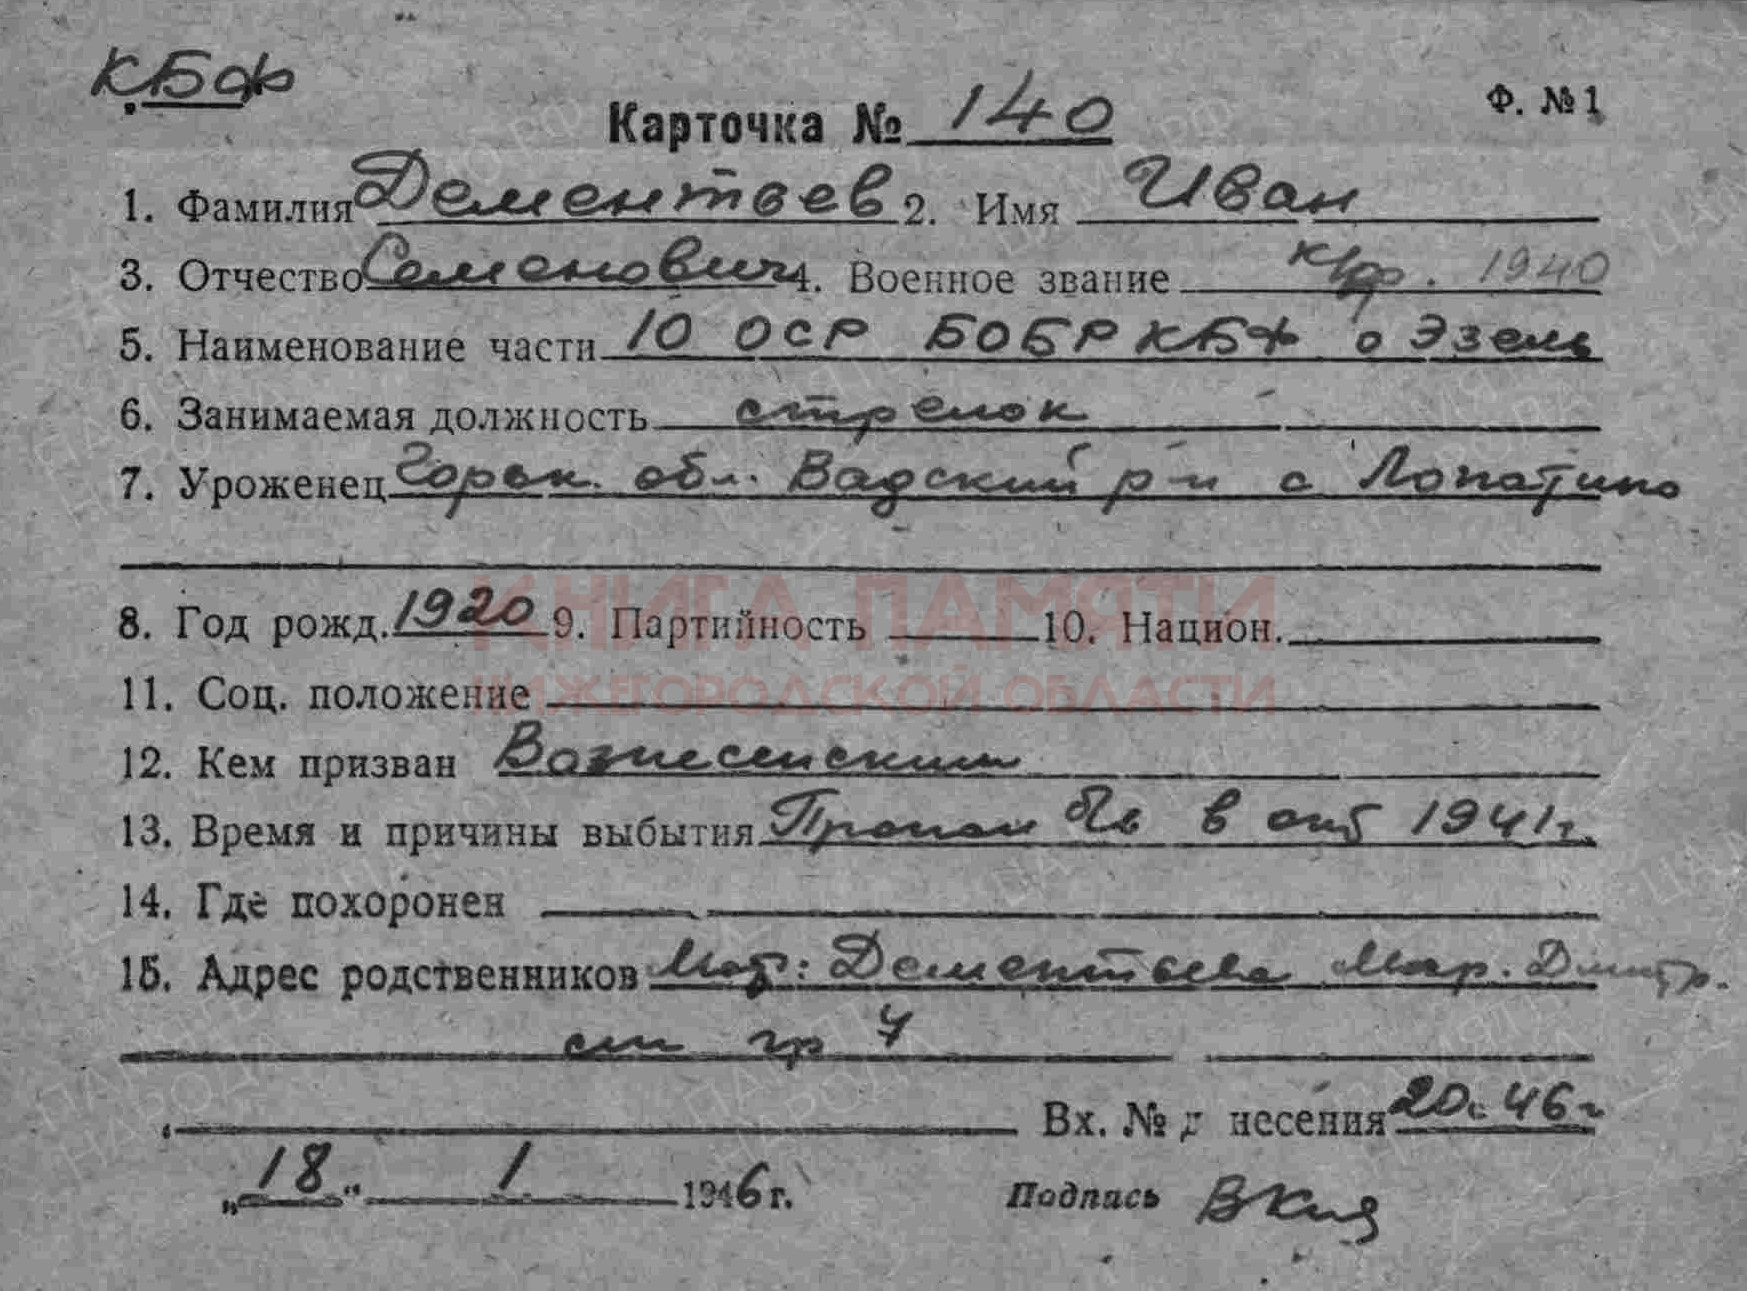 КБФ
Ф. №1
Карточка № 140
1. Фамилия Дементьев 2. Имя Иван
3. Отчество Семенович 4. Военное звание к/ф. 1940
5. Наименование части 10 ОСР БОБР КБФ о Эзель
6. Занимаемая должность стрелок
7. Уроженец Горьк. обл. Вадский р-н с Лопатино
КНИГА ПАМЯТИ
8. Год рожд. 1920 9. Партийность 10. Национ.
НИЖЕГОРОДСКОЙ ОБЛАСТИ
11. Соц. положение
12. Кем призван Вознесенским
13. Время и причины выбытия Пропал б/в в окт 1941г.
14. Где похоронен
15. Адрес родственников Мат: Дементьева Мар. Дмитр.
гр 7
Вх. № д несения 20с 46г
„18“ 1 1946 г. Подпись